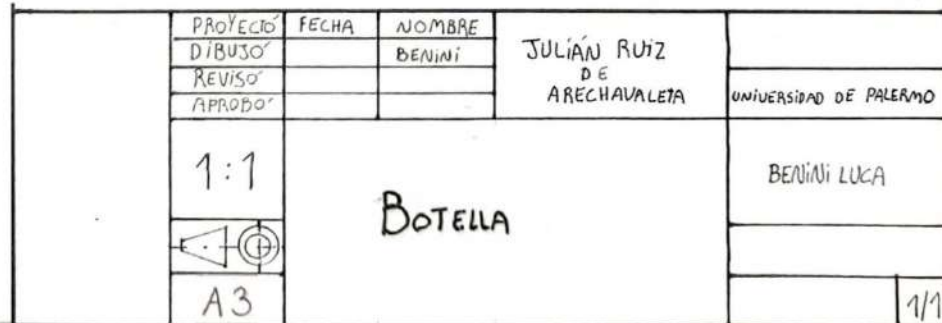 PROYECTÓ FECHA NOMBRE
DIBUJÓ BENINI
REVISÓ
APROBÓ
JULIÁN RUIZ
DE
ARECHAVALETA
UNIVERSIDAD DE PALERMO
1:1
A3
BOTELLA
BENINI LUCA
1/1